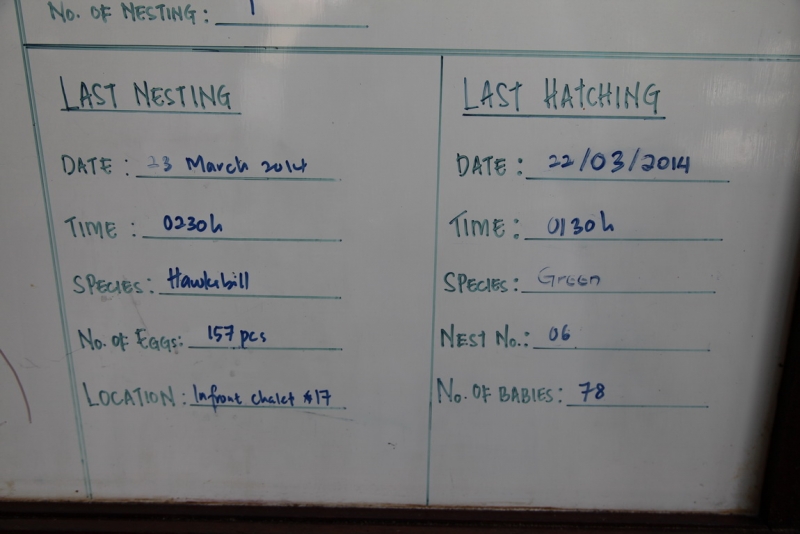 No. OF NESTING: 1
LAST NESTING
DATE: 23 March 2014
TIME: 0230h
SPECIES: Hawksbill
No. OF EGGS: 157 pcs
LOCATION: Infront chalet #17
LAST HATCHING
DATE: 22/03/2014
TIME: 0130h
SPECIES: Green
NEST No.: 06
No. OF BABIES: 78